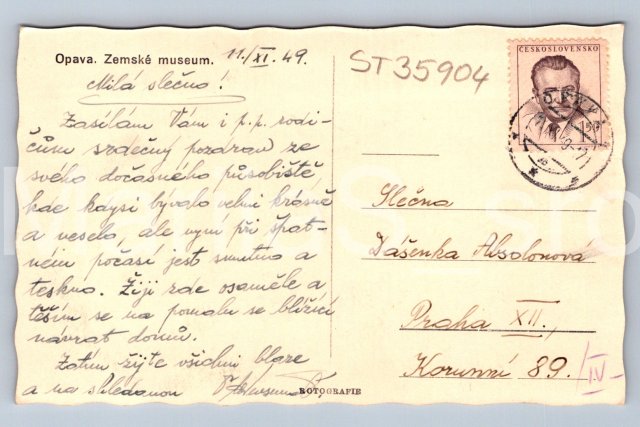 Opava. Zemské museum.
11./XI. 49.
ST35904
ČESKOSLOVENSKO
Milá slečno!
Zasílám Vám i p.p. rodi-
čům srdečný pozdrav ze
svého dočasného působiště
kde kdysi bývalo velmi krásně
a veselo, ale nyní při špat-
ném počasí jest smutno a
teskno. Žiji zde osaměle a
těším se na pomalu se blížící
návrat domů.
Zatím žijte všichni blaze
a na shledanou
Slečna
Dášenka Absolonová
Praha XII.,
Korunní 89./IV-
ROTOGRAFIE